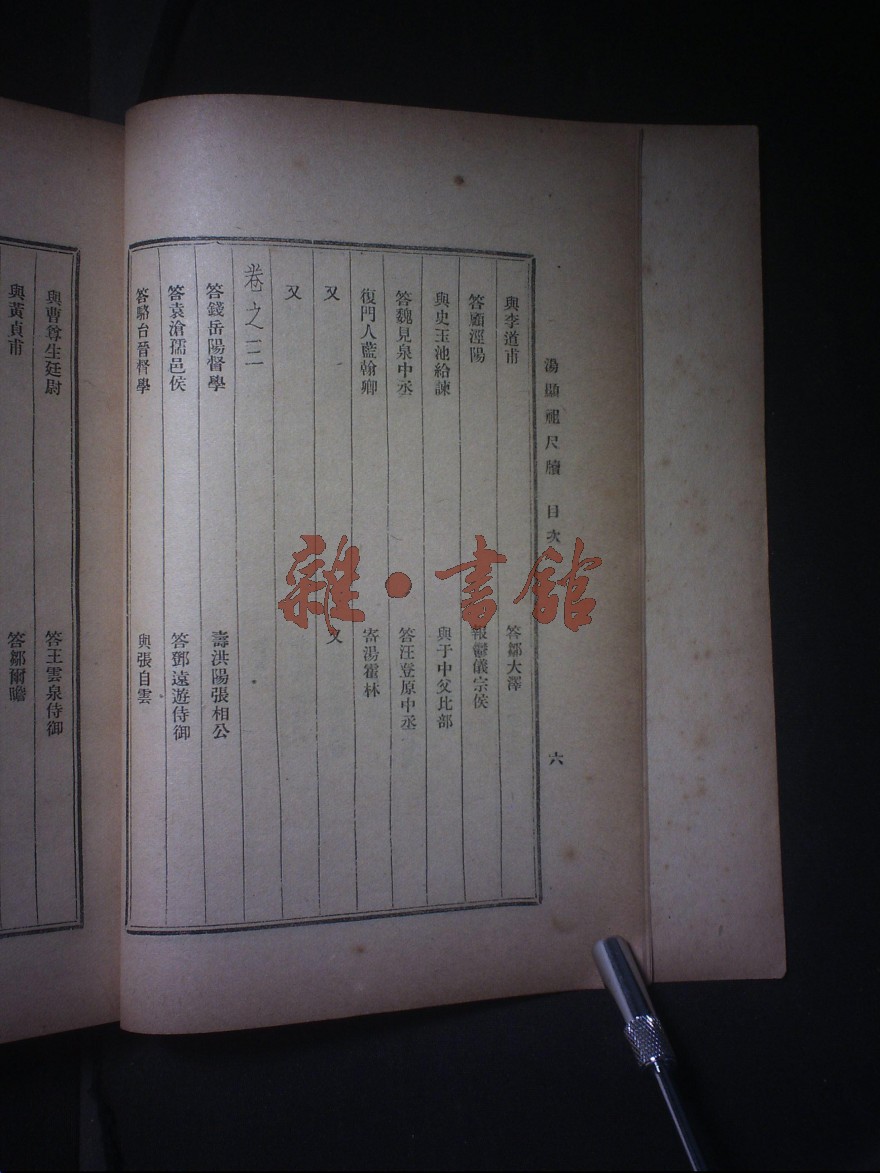 湯顯祖尺牘 目次 六
與李道甫 答鄒大澤
答顧涇陽 報鬱儀宗侯
與史玉池給諫 與于中父比部
答魏見泉中丞 答汪登原中丞
復門人藍翰卿 寄湯霍林
又 又
又
卷之三
答錢岳陽督學 壽洪陽張相公
答袁滄孺邑侯 答鄧遠遊侍御
答駱台晉督學 與張自雲
與曹尊生廷尉 答王雲泉侍御
與黃貞甫 答鄒爾瞻
雜·書館